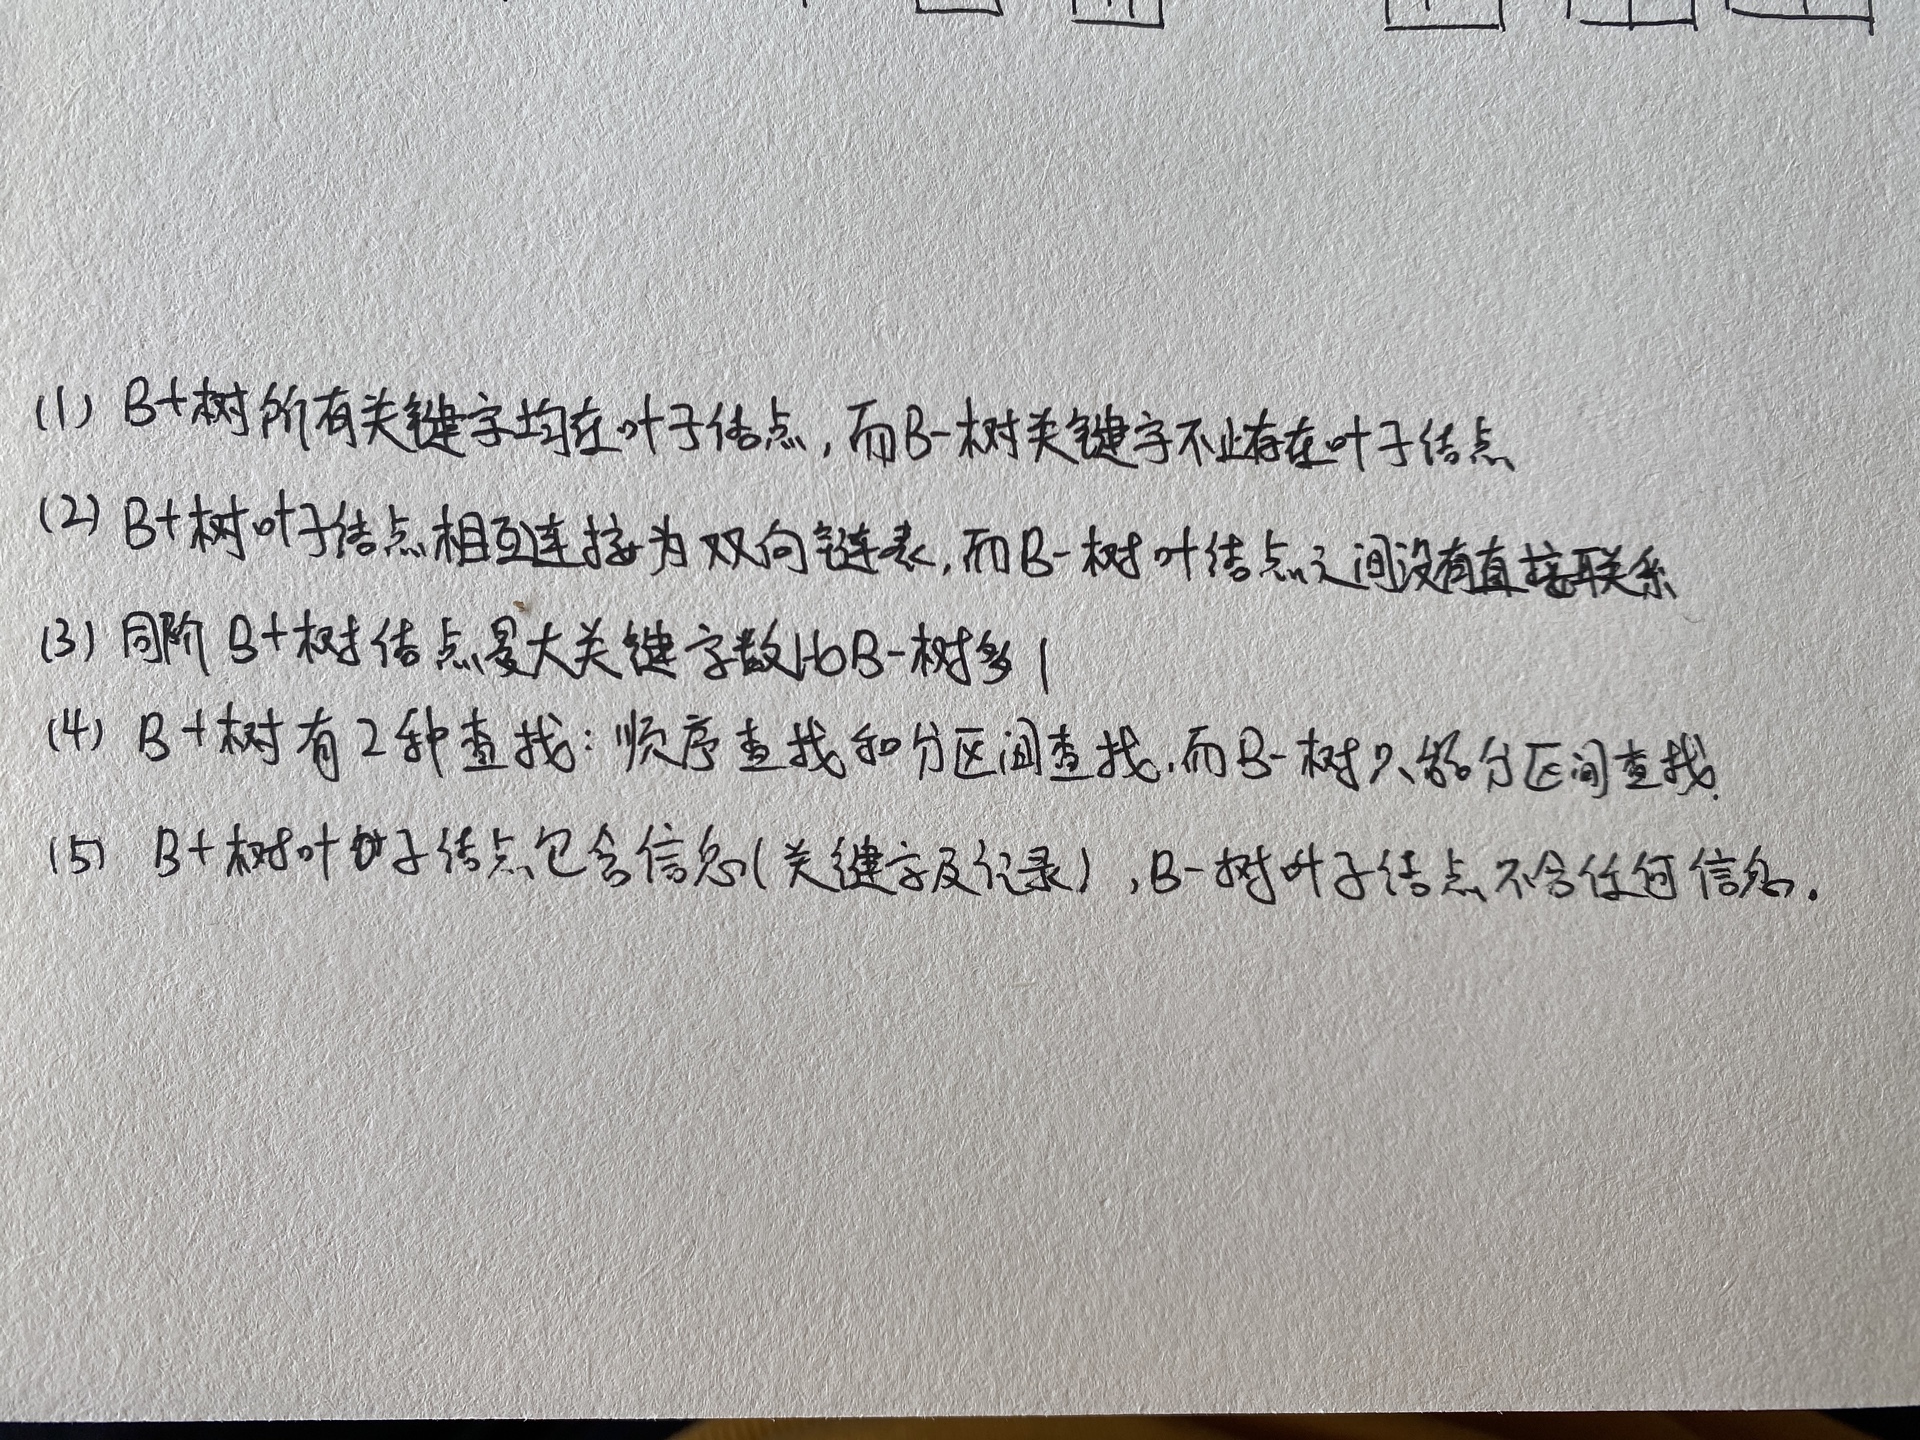 (1) B+树所有关键字均在叶子结点，而B-树关键字不止存在叶子结点
(2) B+树叶子结点相互连接为双向链表，而B-树叶结点之间没有直接联系
(3) 同阶B+树结点最大关键字数比B-树多1
(4) B+树有2种查找：顺序查找和分区间查找，而B-树只能分区间查找.
(5) B+树叶子结点包含信息(关键字及记录)，B-树叶子结点不含任何信息.